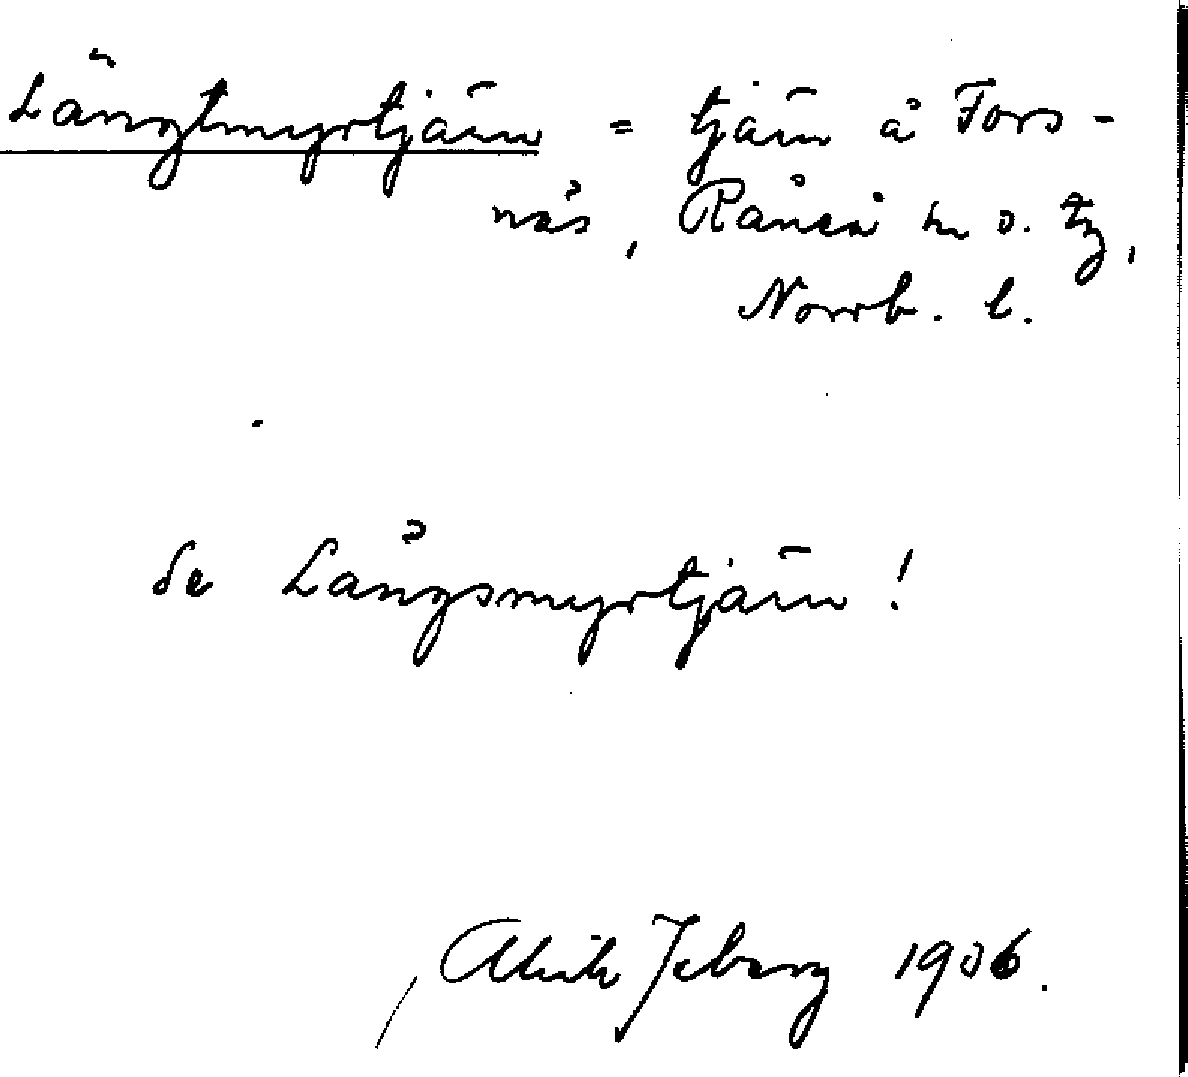 Långtmyrtjärn = tjärn å Fors-
näs, Råneå sn o. tg,
Norrb. l.
Se Långsmyrtjärn!
1906.